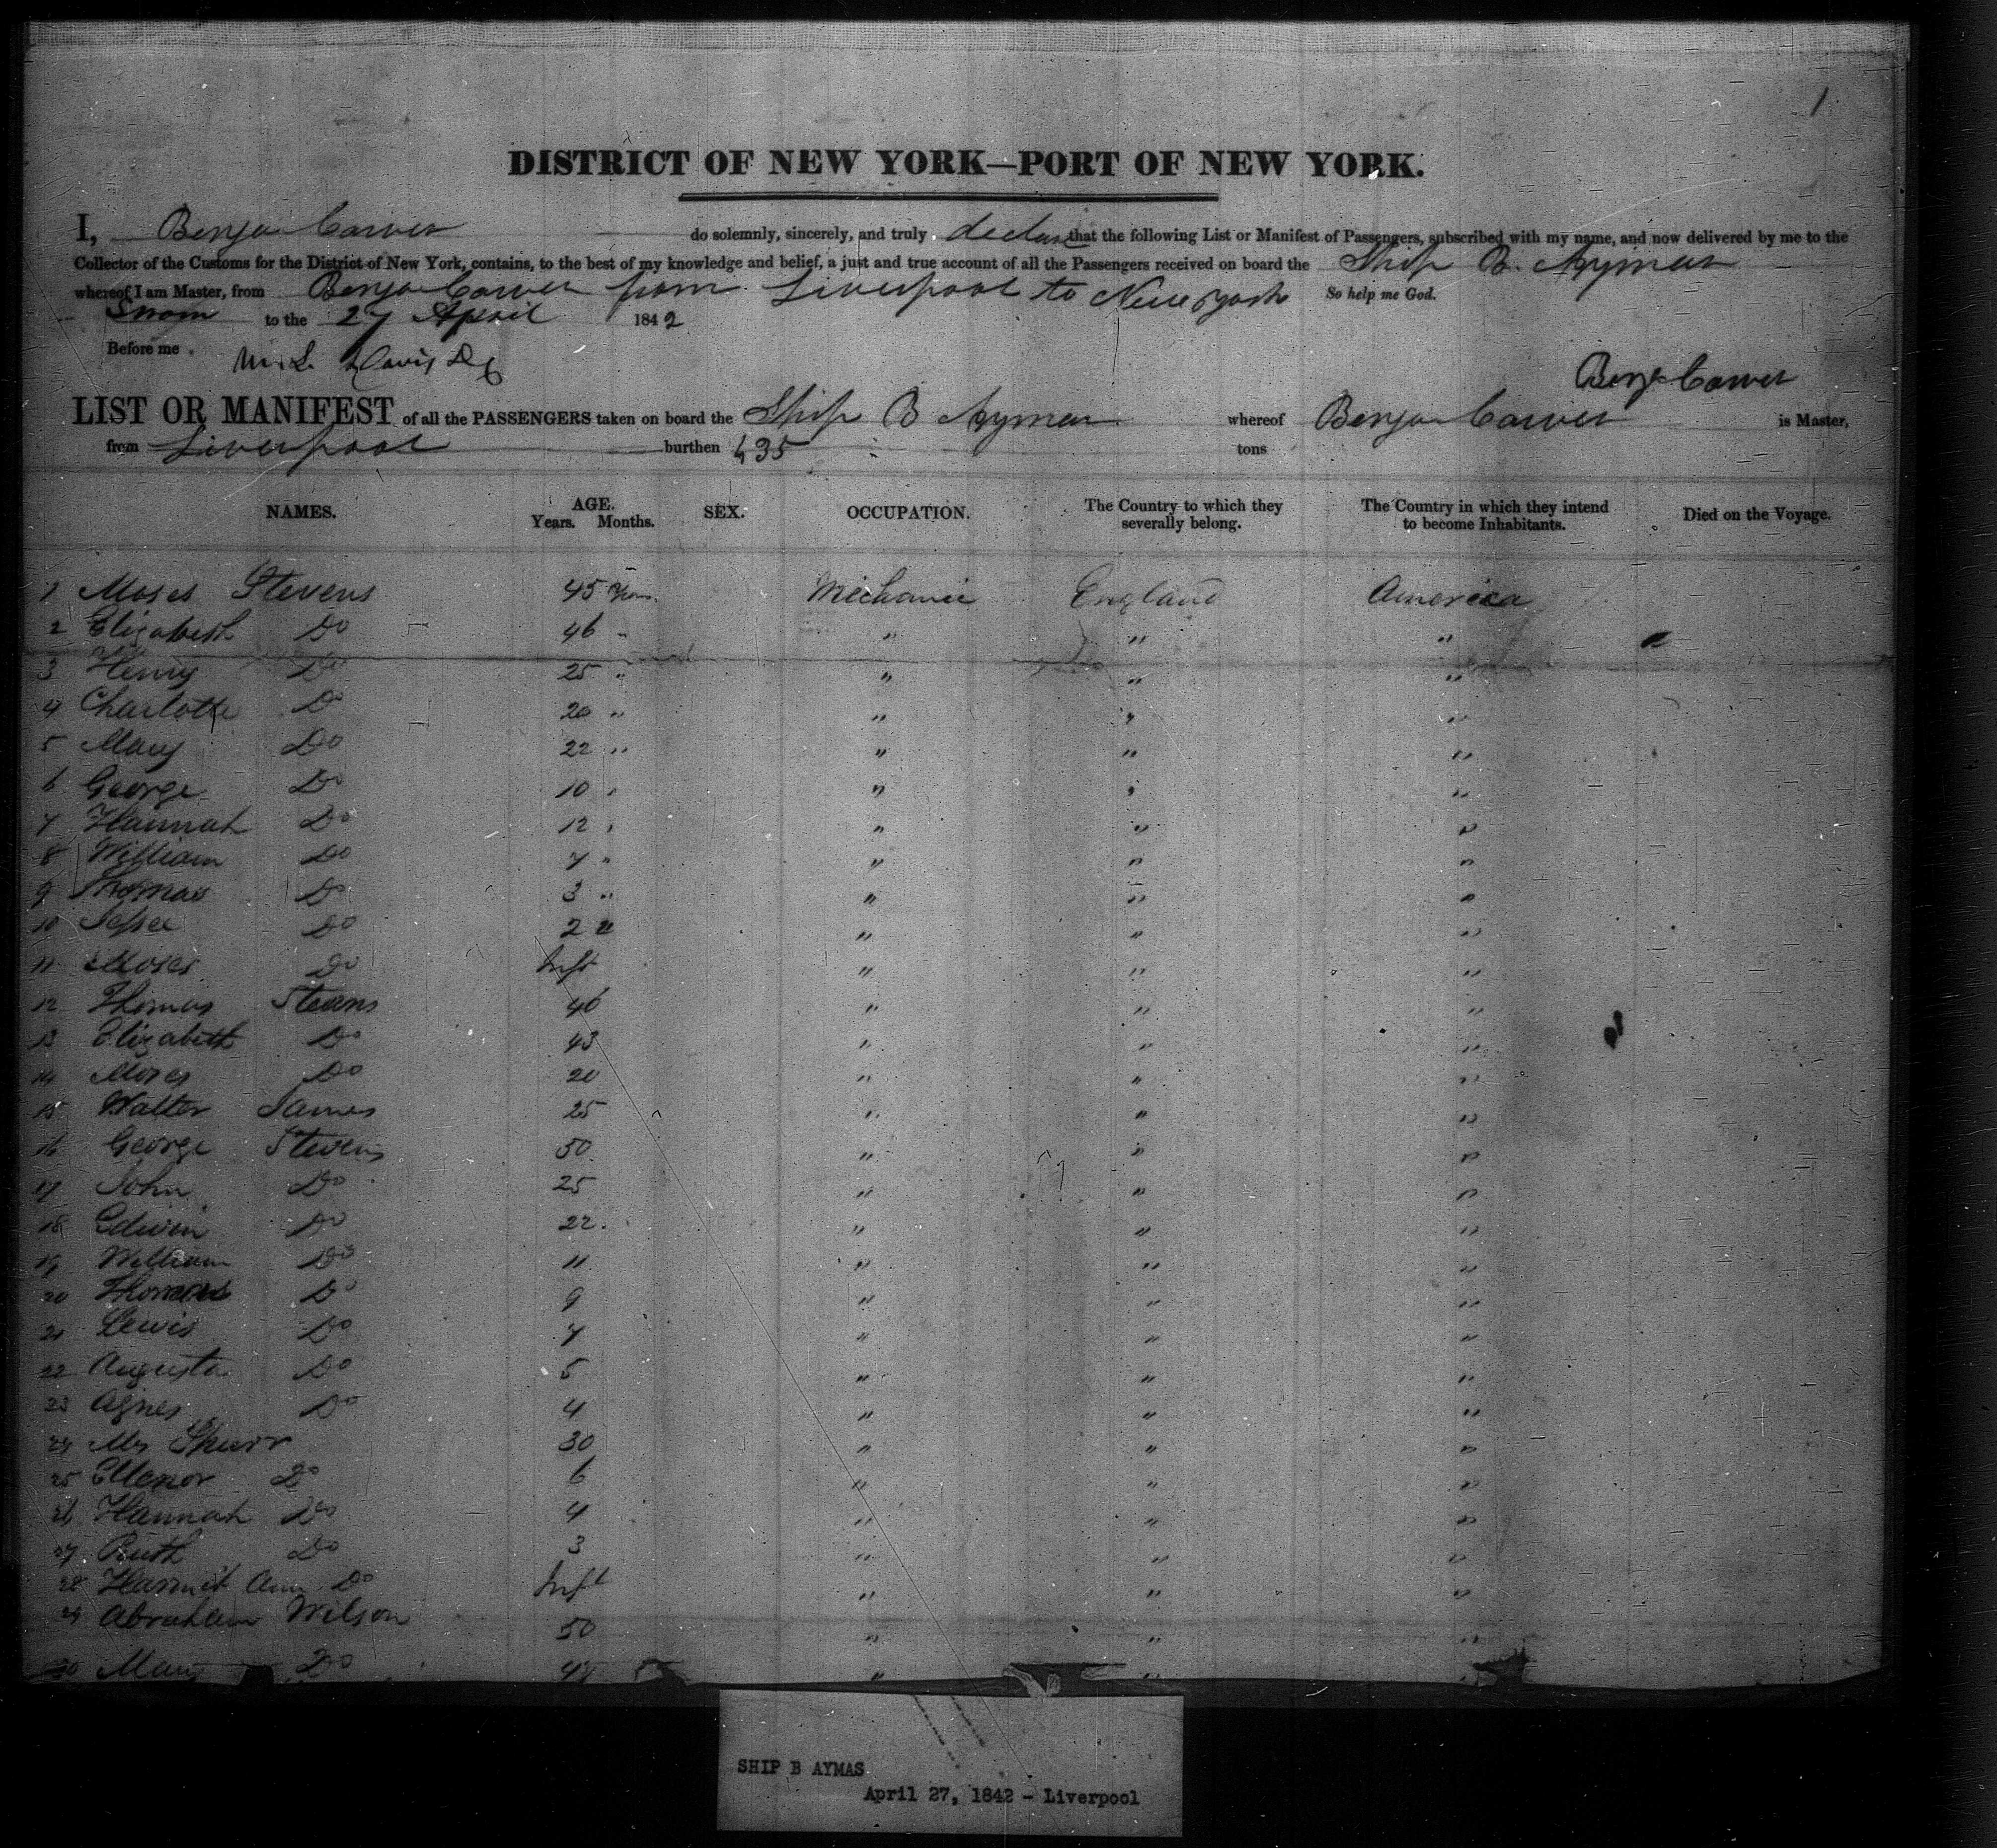 1
DISTRICT OF NEW YORK—PORT OF NEW YORK.
I, Benja Carver do solemnly, sincerely, and truly declare that the following List or Manifest of Passengers, subscribed with my name, and now delivered by me to the
Collector of the Customs for the District of New York, contains, to the best of my knowledge and belief, a just and true account of all the Passengers received on board the Ship B. Aymar
whereof I am Master, from Benja Carver from Liverpool to New York So help me God.
Sworn to the 27 April 1842
Before me M. L. Davis
Benja Carver
LIST OR MANIFEST of all the PASSENGERS taken on board the Ship B Aymar whereof Benja Carver is Master,
from Liverpool burthen 435 tons
NAMES. AGE. Years. Months. SEX. OCCUPATION. The Country to which they severally belong. The Country in which they intend to become Inhabitants. Died on the Voyage.
1 Moses Stevens 45 Years Mechanic England America
2 Elizabeth Do 46 " " " "
3 Henry Do 25 " " " "
4 Charlotte Do 20 " " " "
5 Mary Do 22 " " " "
6 George Do 10 " " " "
7 Hannah Do 12 " " " "
8 William Do 7 " " " "
9 Thomas Do 3 " " " "
10 Jessee Do 2 " " " "
11 Moses Do Inft " " "
12 Thomas Steans 46 " " "
13 Elizabeth Do 43 " " "
14 Moses Do 20 " " "
15 Walter James 25 " " "
16 George Stevens 50 " " "
17 John Do 25 " " "
18 Edwin Do 22 " " "
19 William Do 11 " " "
20 Thomas Do 9 " " "
21 Lewis Do 7 " " "
22 Augusta Do 5 " " "
23 Agnes Do 4 " " "
24 Mrs Spurr 30 " " "
25 Ellenor Do 6 " " "
26 Hannah Do 4 " " "
27 Ruth Do 3 " " "
28 Harriet Ann Do Inft " " "
29 Abraham Wilson 50 " " "
30 Mary Do " " "
SHIP B AYMAS
April 27, 1842 - Liverpool